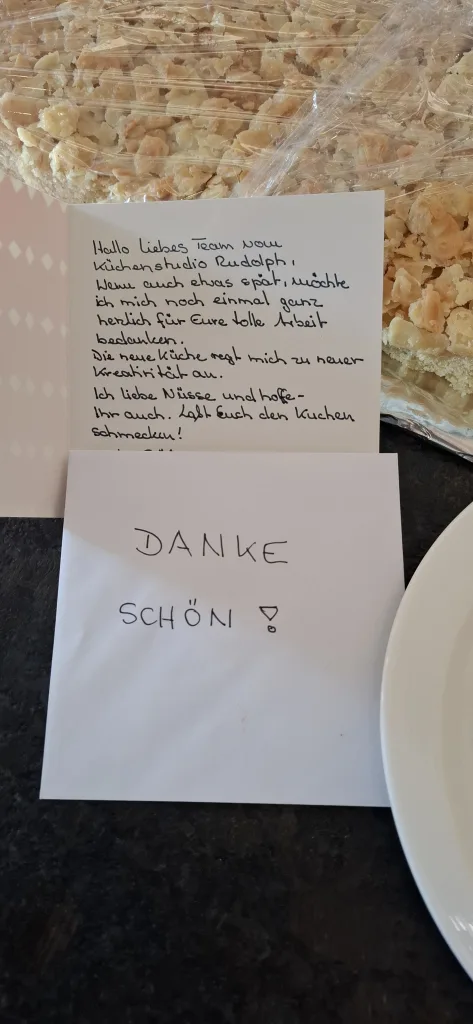 Hallo liebes Team vom
Küchenstudio Rudolph,
Wenn auch etwas spät, möchte
ich mich noch einmal ganz
herzlich für Eure tolle Arbeit
bedanken.
Die neue Küche regt mich zu neuer
Kreativität an.
Ich liebe Nüsse und hoffe-
Ihr auch. Laßt Euch den Kuchen
schmecken!
DANKE
SCHÖN!